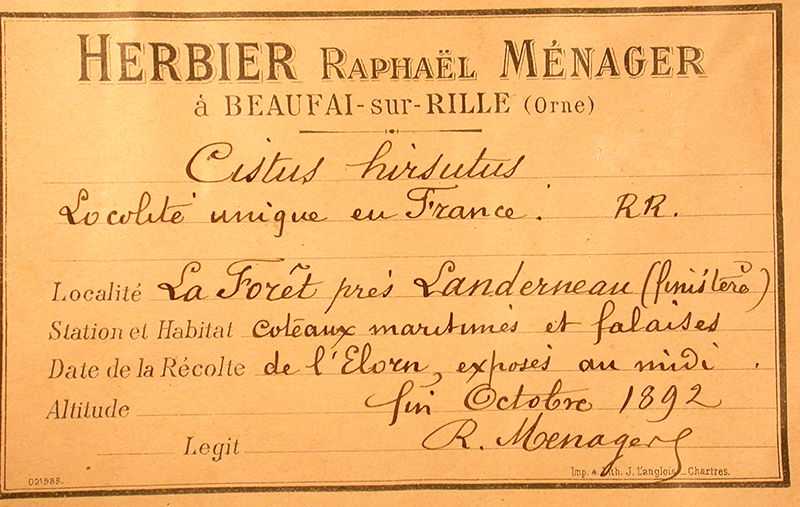 HERBIER RAPHAËL MÉNAGER
à BEAUFAI-sur-RILLE (Orne)
Cistus hirsutus
Locolité unique en France. RR.
Localité La Forêt près Landerneau (finistère)
Station et Habitat coteaux maritimes et falaises
Date de la Récolte de l'Elorn, exposés au midi.
Altitude fin Octobre 1892
Legit R. Menager
021985. Imp. & Lith. J. L'anglois_Chartres.